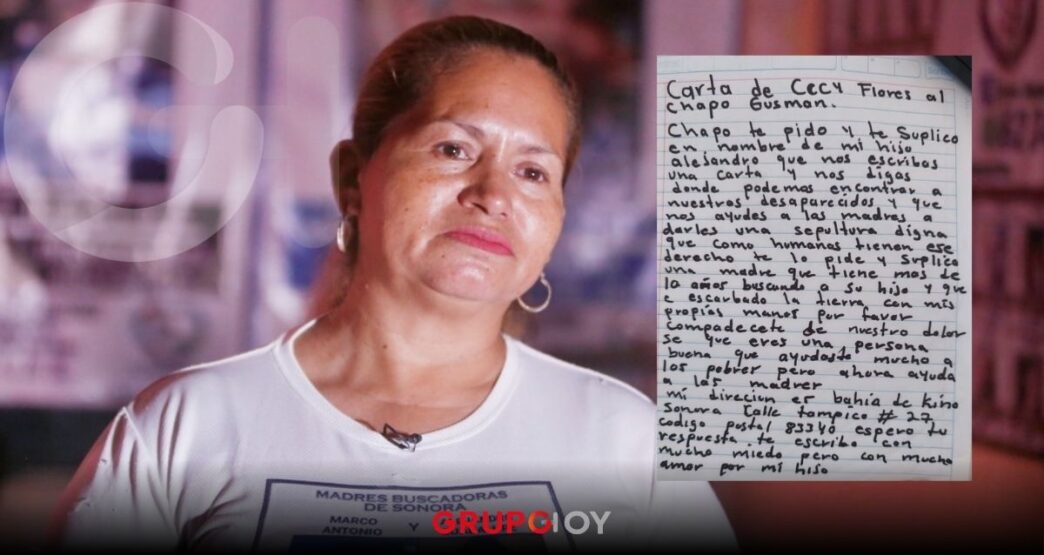 Carta de Cecy Flores al
Chapo Gusman.
Chapo te pido y te Suplico
en nombre de mi hijo
alejandro que nos escribas
una carta y nos digas
donde podemos encontrar a
nuestros desaparecidos y que
nos ayudes a las madres a
darles una sepultura digna
que como humanos tienen ese
derecho te lo pide y Suplico
una madre que tiene mas de
10 años buscando a su hijo y que
e escarbado la tierra con mis
propias manos por favor
compadecete de nuestro dolor
se que eres una persona
buena que ayudaste mucho a
los pobrer pero ahora ayuda
a las madrer
mi direcion er bahia de kino
Sonora Calle tampico # 27
codigo postal 83340 espero tu
respuesta te escribo con
mucho miedo pero con mucho
amor por mi hijo
MADRES BUSCADORAS
DE SONORA
MARCO
ANTONIO Y
GRUPO HOY